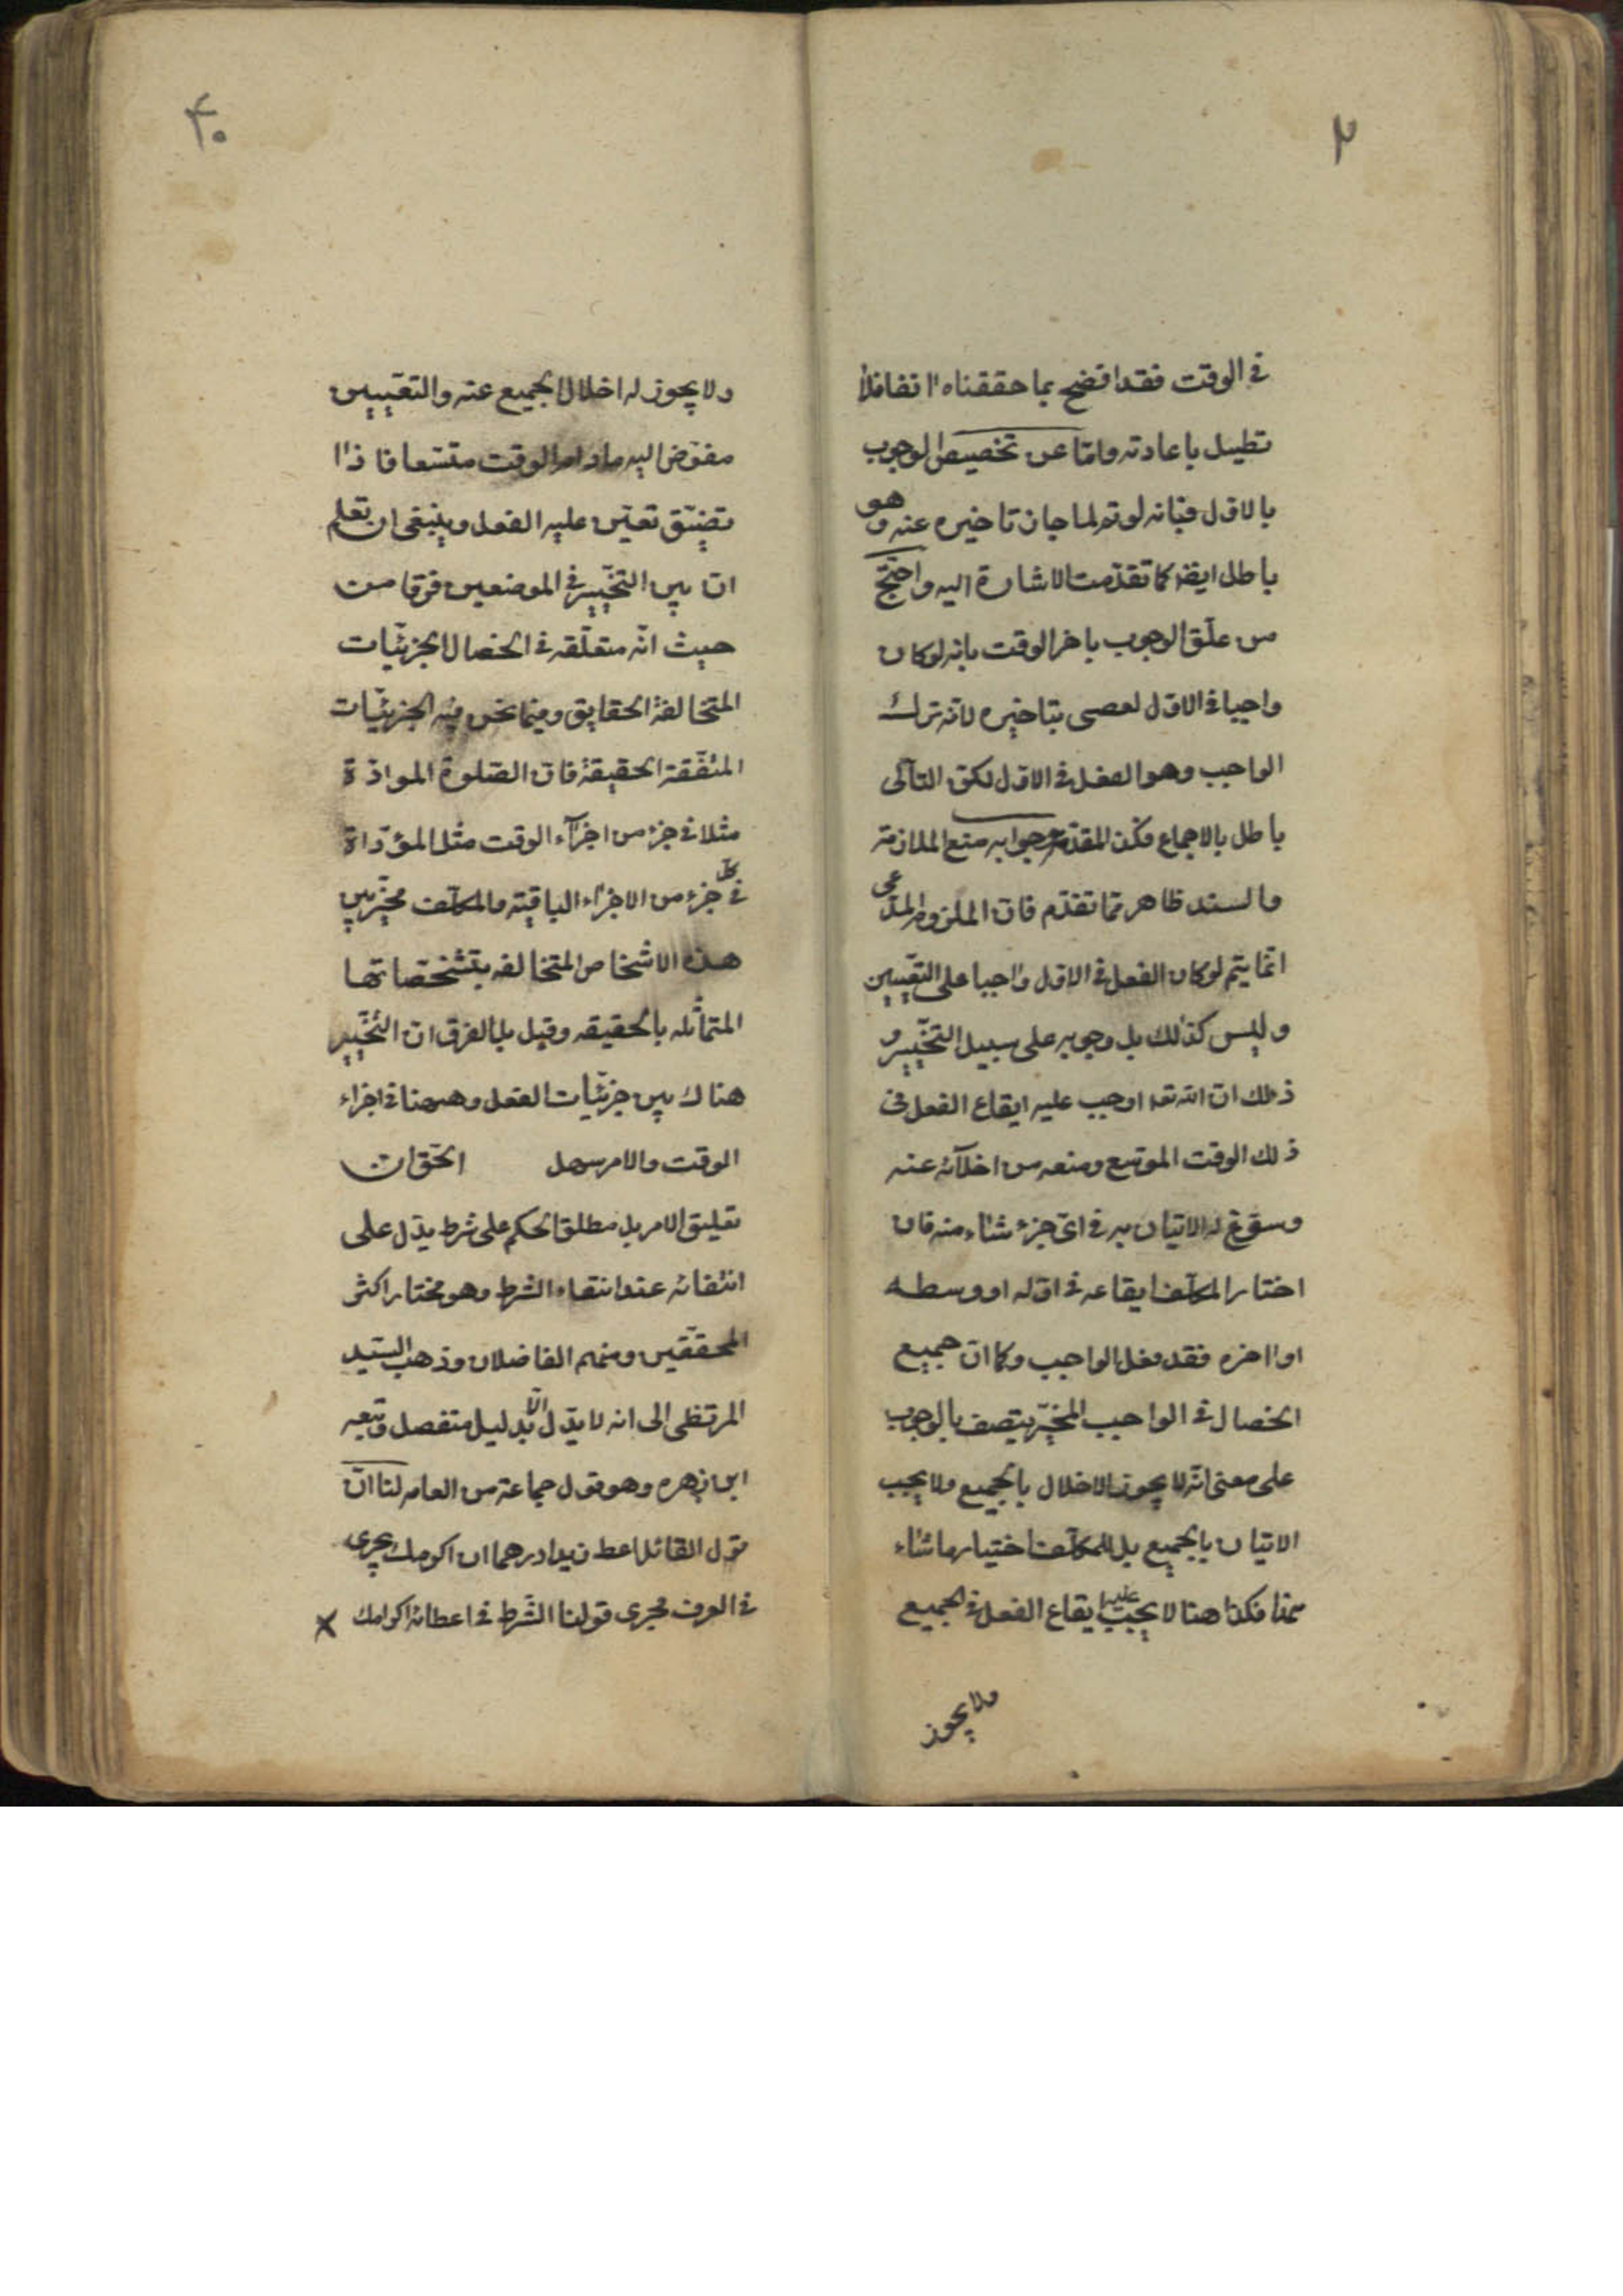 ٢
في الوقت فقد اتضح بما حققناه انفا فلا
نطيل باعادته وامّا عن تخصيص الوجوب
بالاوّل فبانه لو تم لما جاز تاخيره عنه وهو
باطل ايضا كما تقدّمت الاشارة اليه واحتجّ
من علّق الوجوب باخر الوقت بانه لو كان
واجبا في الاوّل لعصى بتاخيره لانّه ترك
الواجب وهو الفعل في الاوّل لكنّ التالى
باطل بالاجماع فكذا المقدّم وجوابه منع الملازمة
والسند ظاهر ممّا تقدّم فانّ اللزوم المدّعى
انّما يتم لو كان الفعل في الاوّل واجبا على التعيين
وليس كذلك بل وجوبه على سبيل التخيير و
ذلك انّ الله تعا اوجب عليه ايقاع الفعل في
ذلك الوقت الموسّع ومنعه من اخلآئه عنه
وسوّغ له الاتيان به في اىّ جزء شاء منه فان
اختار المكلّف ايقاعه في اوّله او وسطه
او اخره فقد فعل الواجب وكما انّ جميع
الخصال في الواجب المخيّر يتصف بالوجوب
على معنى انّه لا يجوز الاخلال بالجميع ولا يجب
الاتيان بالجميع بل للمكلّف اختيار ما شاء
منها فكذا هنا لا يجب عليه ايقاع الفعل في الجميع
ولا يجوز
۴۰
ولا يجوز له اخلال الجميع عنه والتعيين
مفوّض اليه مادام الوقت متّسعا فاذا
تضيّق تعيّن عليه الفعل وينبغى ان تعلم
انّ بين التخيير في الموضعين فرقا من
حيث انّه متعلّقه في الخصال الجزئيّات
المتخالفة الحقايق وفيما نحن فيه الجزئيّات
المتّفقة الحقيقة فانّ الصّلوة المؤادّة
مثلا في جزء من اجزآء الوقت مثل المؤدّاة
في كلّ جزء من الاجزاء الباقية والمكلّف مخيّر بين
هذه الاشخاص المتخالفه بتشخّصاتها
المتماثله بالحقيقه وقيل بل الفرق انّ التخيير
هناك بين جزئيّات الفعل وههنا في اجزاء
الوقت والامر سهل الحقّ انّ
تعليق الامر بل مطلق الحكم على شرط يدّل على
انتفائه عند انتفاء الشرط وهو مختار اكثر
المحقّقين ومنهم الفاضلان وذهب السيّد
المرتضى الى انه لا يدّل الّا بدليل منفصل وتبعه
ابن زهره وهو قول جماعة من العامه لنا انّ
قول القائل اعط زيدا درهما ان اكرمك يجرى
في العرف مجرى قولنا الشّرط في اعطائه اكرامك